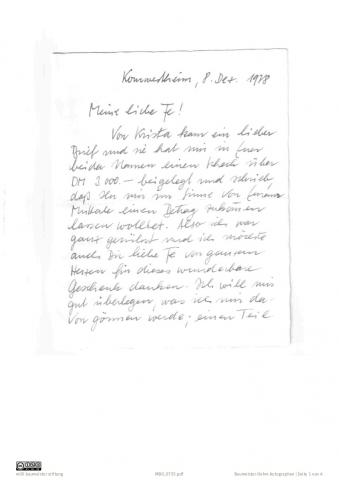 Kommertheim, 8. Dez. 1978
Meine liebe Fe!
Von Krista kam ein lieber
Brief und sie hat mir in Euer
beider Namen einen Scheck über
DM 3 000.— beigelegt und schrieb
daß Ihr mir im Sinne von
Mutter einen Betrag zukommen
lassen wolltet. Also ich war
ganz gerührt und ich möchte
auch Dir liebe Fe von ganzem
Herzen für dieses wunderbare
Geschenk danken. Ich will mir
gut überlegen, was ich mir da-
von gönnen werde; einen Teil
willi baumeister stiftung
Baumeister-Rehm Autographen | Seite 1 von 4